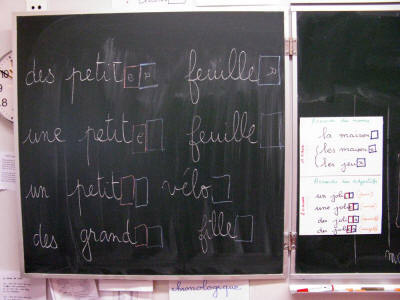 des petites feuilles
une petite feuille
un petit vélo
des grand fille
la maison
les maisons
les jeux
un joli
une jolie
des jolis
des jolies
chronologique